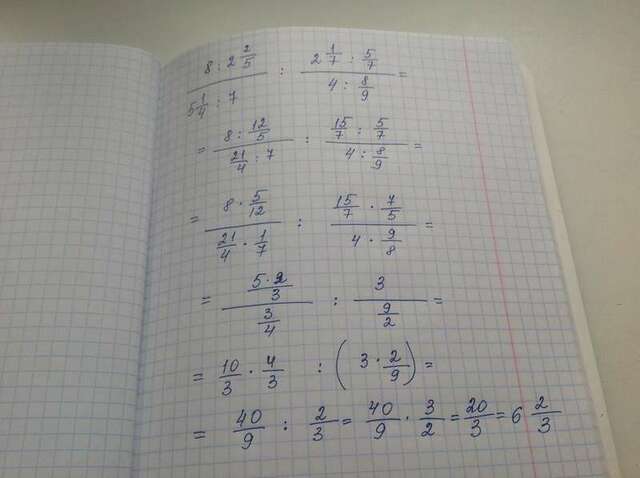 (8 : 2 2/5)/(5 1/4 : 7) : (2 1/7 : 5/7)/(4 : 8/9) =
= (8 : 12/5)/(21/4 : 7) : (15/7 : 5/7)/(4 : 8/9) =
= (8 · 5/12)/(21/4 · 1/7) : (15/7 · 7/5)/(4 · 9/8) =
= ((5 · 2)/3)/(3/4) : 3/(9/2) =
= 10/3 · 4/3 : (3 · 2/9) =
= 40/9 : 2/3 = 40/9 · 3/2 = 20/3 = 6 2/3